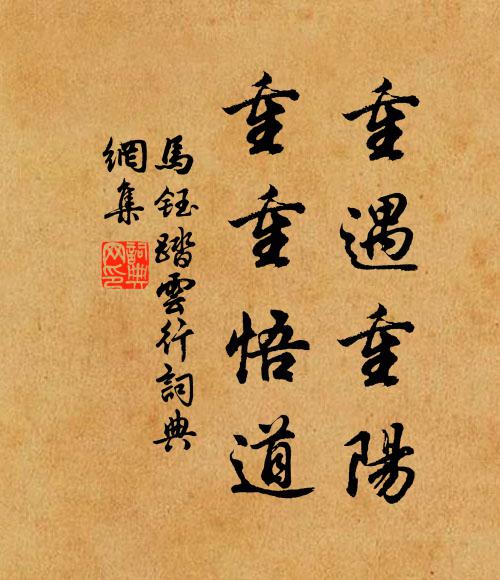 重遇重陽
重重悟道
馬鈺踏雲行詞典
網集
詞典
网印